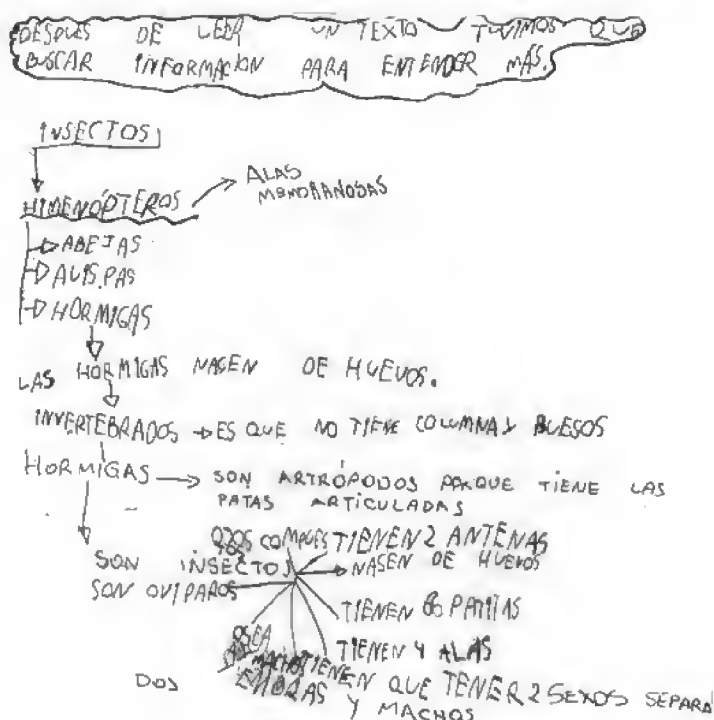 DESPUES DE LEER UN TEXTO TUVIMOS QUE
BUSCAR INFORMACION PARA ENTENDER MÁS.
INSECTOS
HIMENÓPTEROS
ALAS
MENBRANOSAS
ABEJAS
AVISPAS
HORMIGAS
LAS HORMIGAS NASEN DE HUEVOS.
INVERTEBRADOS ES QUE NO TIENE COLUMNA Y BUESOS
HORMIGAS SON ARTRÓPODOS PORQUE TIENE LAS
PATAS ARTICULADAS
OJOS COMPUES TOS
TIENEN 2 ANTENAS
SON INSECTOS
NASEN DE HUEVOS
SON OVIPAROS
TIENEN 6 PATITAS
TIENEN 4 ALAS
OSEA
TIENEN QUE TENER 2 SEXOS SEPARA
DOS
EMBRAS Y MACHOS